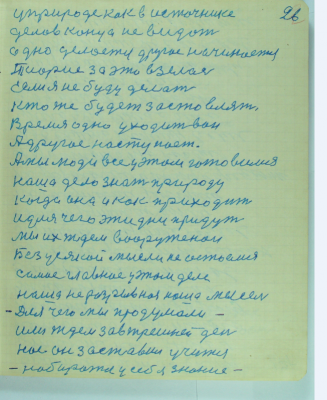 26
у природе как в источнике
делов конца не видют
одно делается другое начинается
Теорие за это взелас
Если я не буду делат
кто же будет заставлят.
Время одно уходит вон
А другое наступает.
А ты люди все у этом готовился
наша дело знат природу
когда ана и как приходит
и для чего эти дни придут
мы их ждем вооруженои
Без усякой мысли не состоялися
самое главное у этом деле
наша не разрывная наша мысель
- Для чего мы продумали -
или ждем завтрешней ден
ное он заставил учится
- набиратся у себя знание -